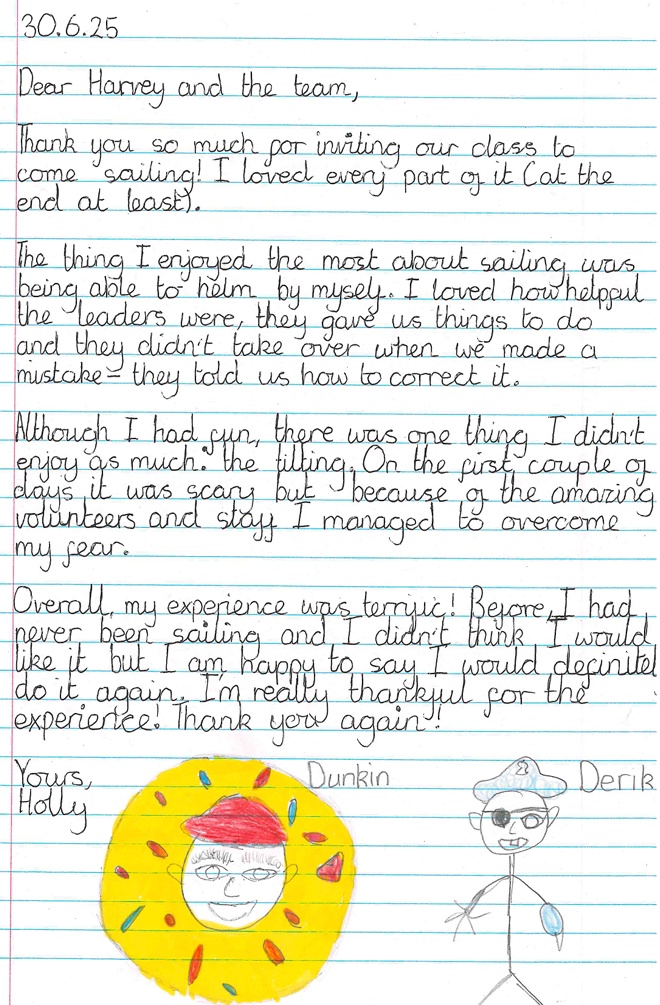 30.6.25
Dear Harvey and the team,
Thank you so much for inviting our class to
come sailing! I loved every part of it (at the
end at least).
The thing I enjoyed the most about sailing was
being able to helm by myself. I loved how helpful
the leaders were, they gave us things to do
and they didn't take over when we made a
mistake – they told us how to correct it.
Although I had fun, there was one thing I didn't
enjoy as much: the tilting. On the first couple of
days it was scary but because of the amazing
volunteers and staff I managed to overcome
my fear.
Overall, my experience was terrific! Before, I had
never been sailing and I didn't think I would
like it but I am happy to say I would definitel
do it again. I'm really thankful for the
experience! Thank you again!
Yours,
Holly
Dunkin
Derik